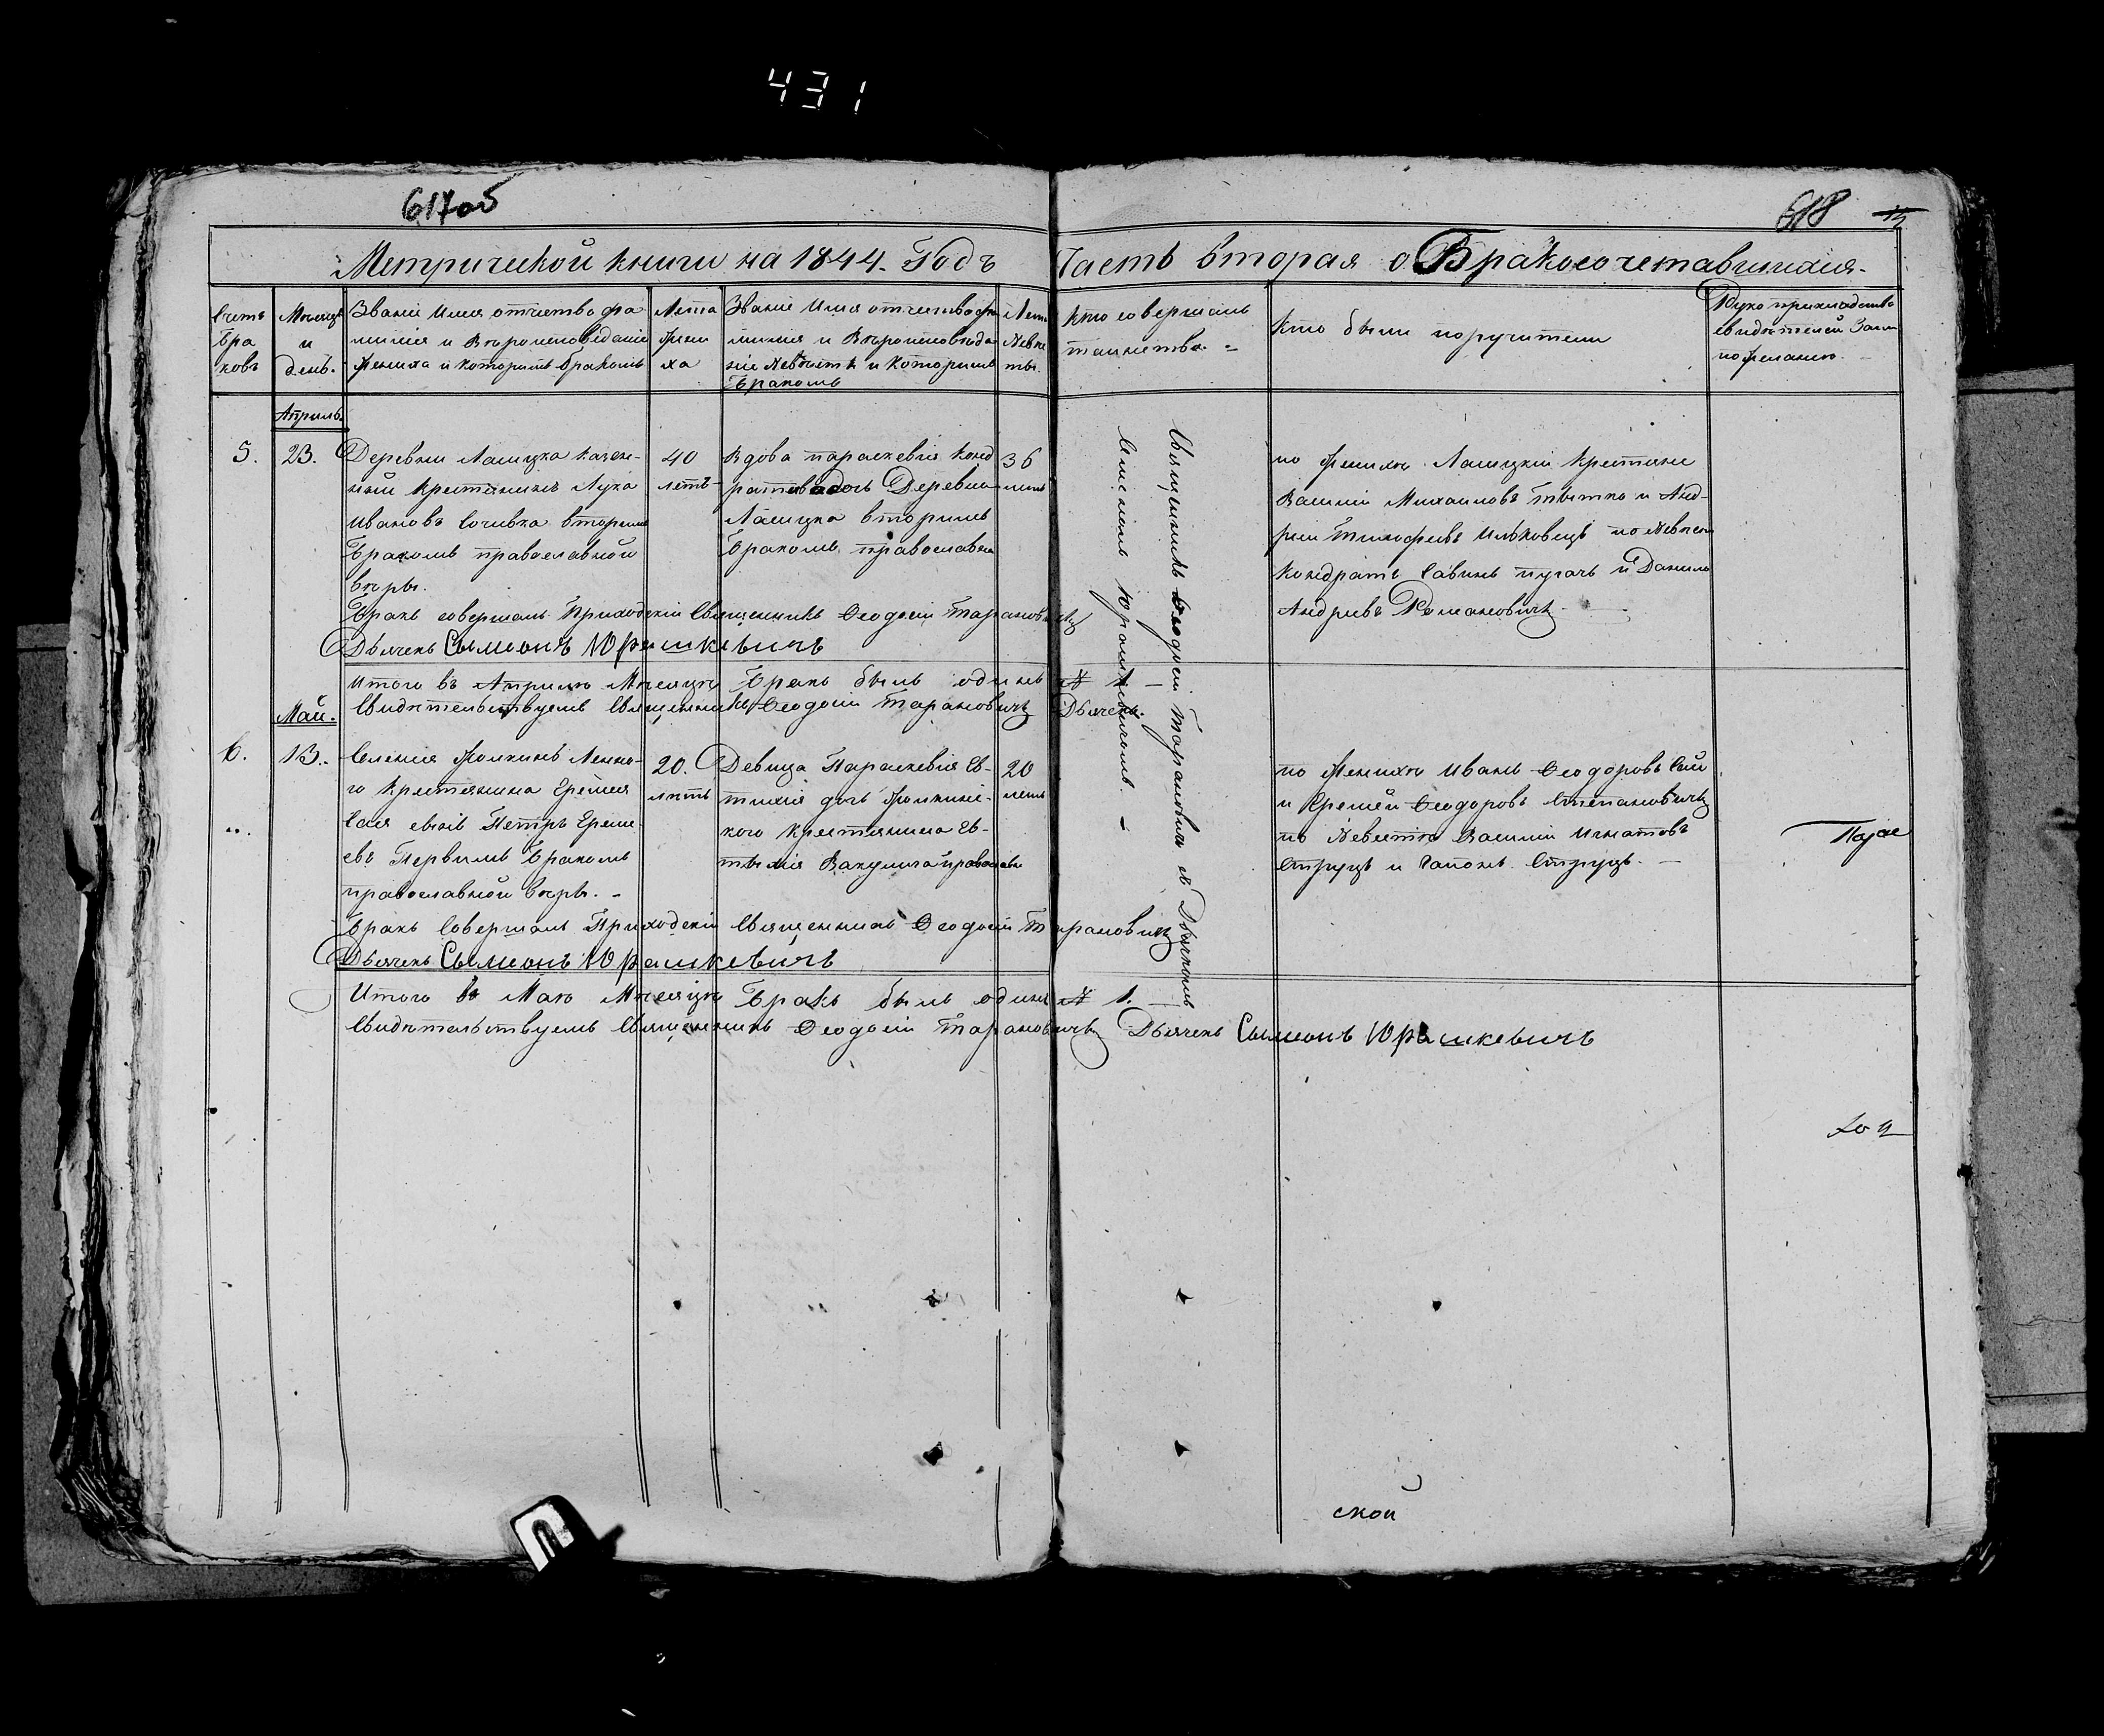 431
617об
618
Метрической книги на 1844. Годъ Часть вторая о Бракосочетавшихся.
Счетъ Бра ковъ
Месяцъ и День.
Званiе Имя отчество фа
милiя и Вероисповеданiе
жениха и которымъ бракомъ
Лета жени ха
Званiе Имя отчество фа
милiя и Вероисповеда
нiе Невесты и Которымъ
Бракомъ
Лета Неве сты.
Кто совершалъ
таинство. =
Кто были поручители
свидетелей Запи
по желанiю.
Апрель.
5. 23.
Деревни Ласицка Казен-
ный Крестянинъ Лука
Ивановъ Сочивка вторымъ
Бракомъ православной
веры.
40
летъ
Вдова параскевiя Конд
Деревни
Ласицка вторымъ
Бракомъ православной
36
летъ
Священникъ Ѳеодосiй Тарановичъ съ Дьячкомъ
Симеономъ Юрашкевичомъ. –
по Жениху Ласицкiи Крестяне
Василiй Михаиловъ и Анд-
рей Тимофеевъ Ильковецъ по Невесте
Кондратъ Савинъ пугачъ и Данило
Андреевъ Романовичъ
Бракъ совершалъ Приходскiй Священникъ Ѳеодосiй Тарановичъ
Дьячекъ Сымеонъ Юрашкевичъ
Итого въ Апреле Месяце Бракъ былъ одинъ № 1 –
Свидетельствуемъ Священникъ Ѳеодосiй Тарановичъ Дьячекъ.
Май.
6. 13.
Селенiя
го Крестянина Еремея
Сая сынъ Петръ Ереме
евъ Первымъ Бракомъ
православной веры. –
20.
летъ
Девица Параскевiя Ев-
тихiя дочь
кого крестянина Ев-
тихiя Вакулича православн
20
летъ
по Жениху Иванъ Ѳеодоровъ Сай
и Еремей Ѳеодоровъ Степановичъ
по Невесте Василiй Игнатовъ
Струцъ и Гапонъ Струцъ. –
Бракъ Совершалъ Приходскiй Священникъ Ѳеодосiй Тарановичъ
Дьячекъ Сымеонъ Юрашкевичъ
Итого въ Маю Месяце Бракъ былъ одинъ № 1. –
Свидетельствуемъ Священникъ Ѳеодосiй Тарановичъ Дьячекъ Сымеонъ Юрашкевичъ
ской